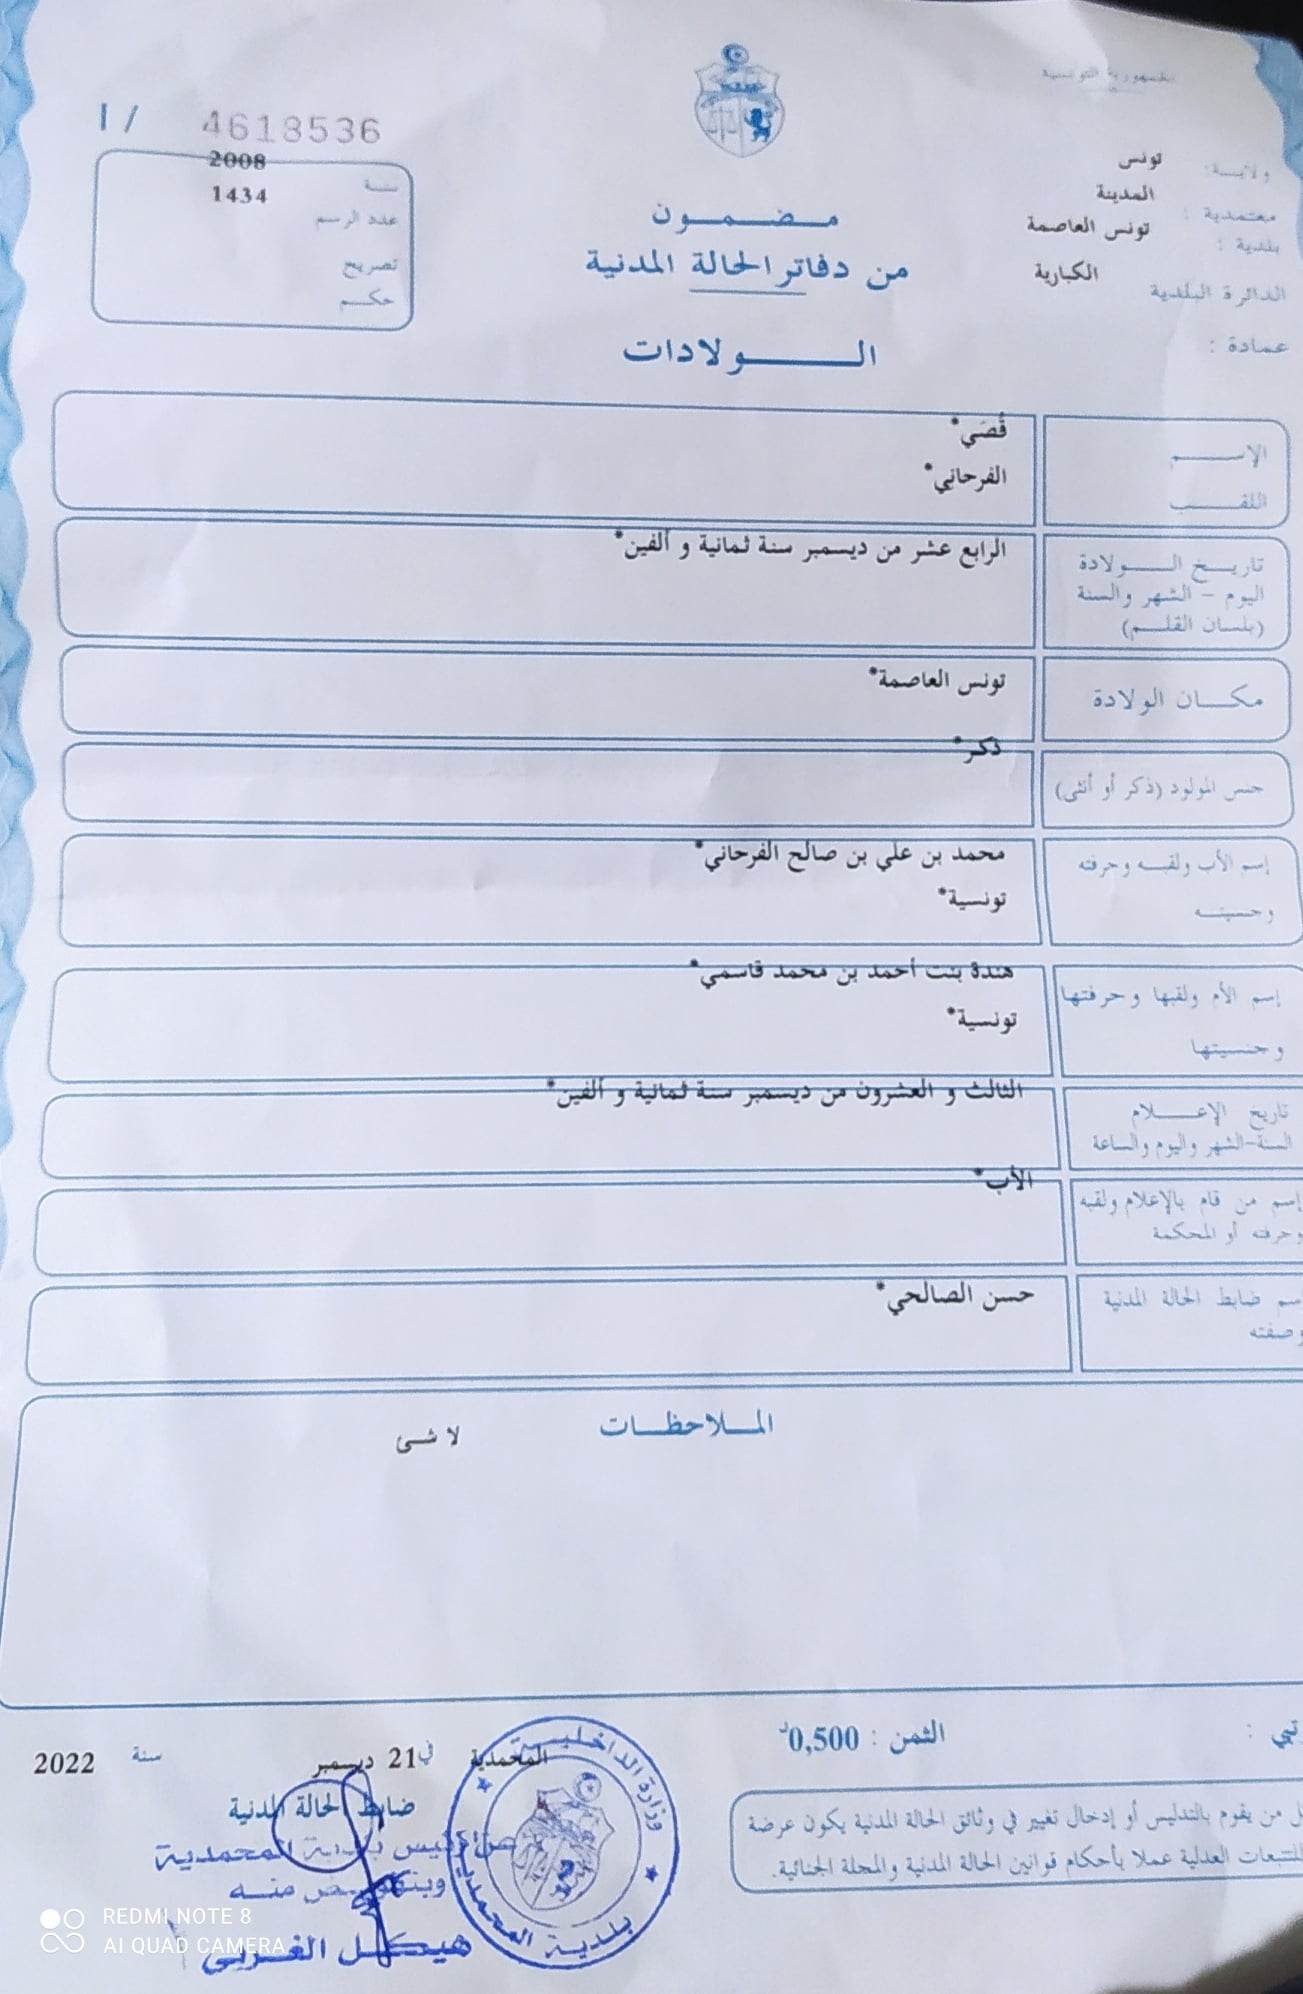 الجمهورية التونسية
I / 4618536
ولايـــة: تونس
معتمدية : المدينة
بلدية : تونس العاصمة
الدائرة البلدية الكبارية
عمادة :
سنــة 2008
عدد الرسم 1434
تصريح
حكـــم
مـضـمـــون
من دفاتر الحالة المدنية
الــــولادات
الإســــم قُصَي*
اللقــــب الفرحاني*
تاريـــخ الـــولادة الرابع عشر من ديسمبر سنة ثمانية و ألفين*
اليوم - الشهر والسنة
(بلسان القلـــم)
مكـــان الولادة تونس العاصمة*
جنس المولود (ذكر أو أنثى) ذكر*
إسم الأب ولقبـــه وحرفته محمد بن علي بن صالح الفرحاني*
وجنسيتـــه تونسية*
إسم الأم ولقبها وحرفتها هندة بنت أحمد بن محمد قاسمي*
وجنسيتها تونسية*
تاريخ الإعـــلام الثالث و العشرون من ديسمبر سنة ثمانية و ألفين*
السنة-الشهر واليوم والساعة
إسم من قام بالإعلام ولقبه الأب*
وحرفته أو المحكمة
سم ضابط الحالة المدنية حسن الصالحي*
وصفته
المـــلاحظـــات
لا شـــئ
الثمن : 0,500د
المحمدية في 21 ديسمبر سنة 2022
ضابط الحالة المدنية
عن رئيس بلدية المحمدية
وبتفويض منــه
هيكل الغربي
وزارة الداخلية
بلدية المحمدية
ل من يقوم بالتدليس أو إدخال تغيير في وثائق الحالة المدنية يكون عرضة
للتتبعات العدلية عملا بأحكام قوانين الحالة المدنية والمجلة الجنائية.
REDMI NOTE 8
AI QUAD CAMERA